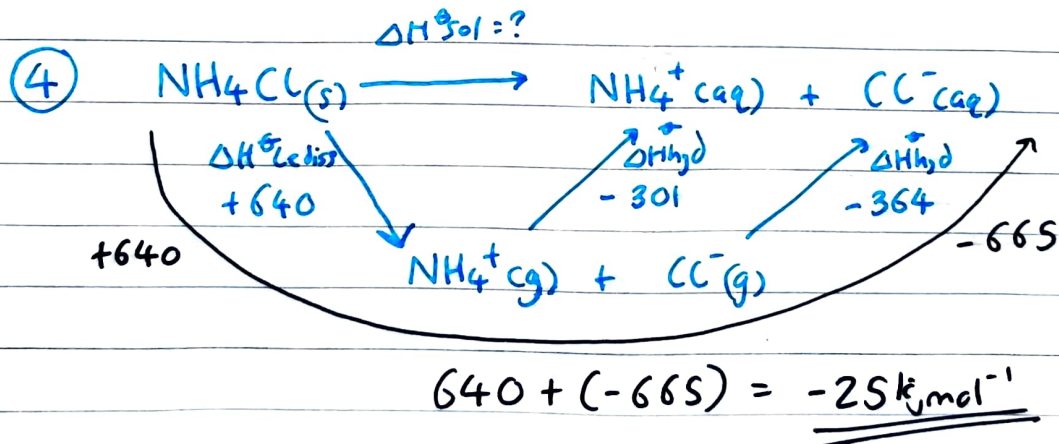 ΔH°sol = ?
④ NH4Cl(s) → NH4⁺(aq) + Cl⁻(aq)
ΔH°Lediss ΔH°hyd ΔH°hyd
+640 -301 -364
+640 -665
NH4⁺(g) + Cl⁻(g)
640 + (-665) = -25kjmol⁻¹